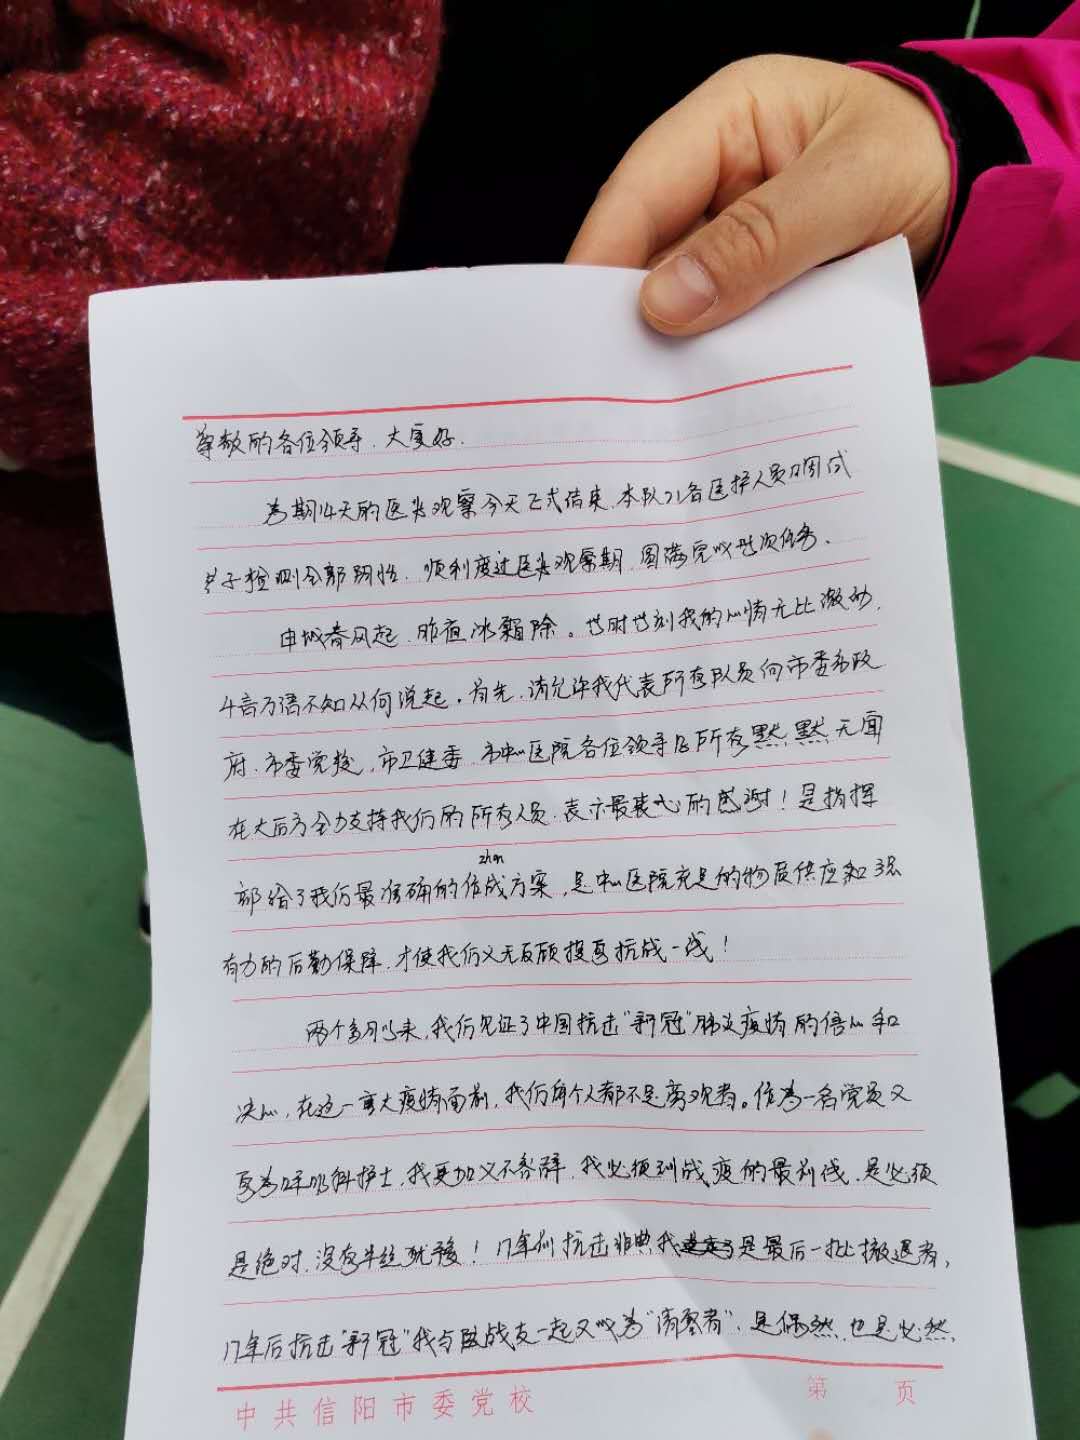 尊敬的各位领导、大家好.
为期14天的医学观察今天正式结束,本队21名医护人员
检测全部阴性,顺利度过医学观察期,圆满完成此次任务.
申城春风起,昨夜冰霜除。此时此刻我的心情无比激动,
千言万语不知从何说起.首先,请允许我代表所有队员向市委市政
府、市委党校,市卫健委、市中心医院各位领导及所有默默无闻
在大后方全力支持我们的所有人员,表示最衷心的感谢!是指挥
zhan
部给了我们最准确的作战方案,是中心医院充足的物质供应和强
有力的后勤保障,才使我们义无反顾投身抗战一线!
两个多月以来,我们见证了中国抗击"新冠"肺炎疫情的信心和
决心,在这一重大疫情面前,我们每个人都不是旁观者。作为一名党员又
身为呼吸科护士,我更加义不容辞,我必须到战疫的最前线,是必须
是绝对,没有半丝犹豫!17年前抗击非典我是最后一批撤退者,
17年后抗击"新冠"我与战友一起又成为"清零者",是偶然,也是必然,
中共信阳市委党校
第 页